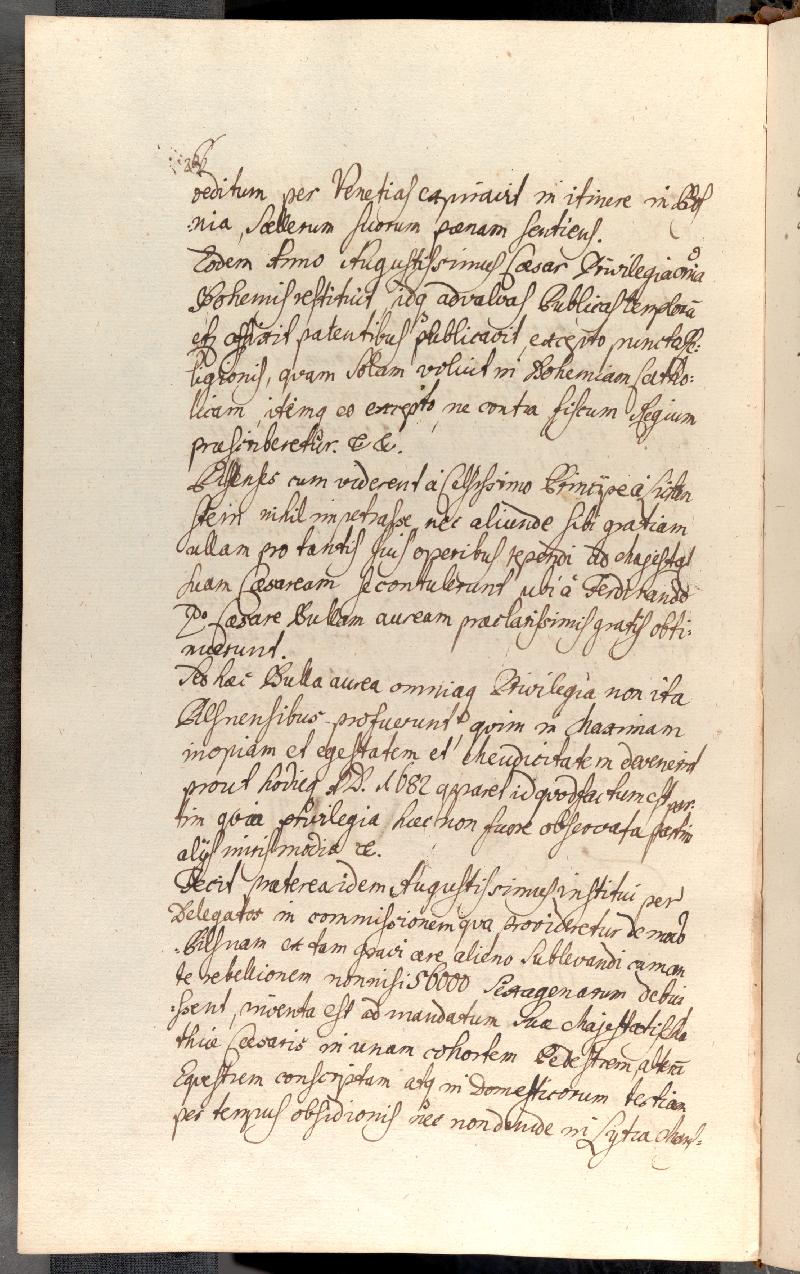 reditum per Venetias expiravit in itinere in Bos
:nia, scellerum suorum pœnam sentiens.
Eodem Anno Augustissimus Cæsar Privilegia omnia
Bohemis restituit, idq ad valvas Publicas templorū
et patentibus publicavit, excepto puncto Re:
ligionis, quam solam voluit in Bohemiam Catho:
licam, itemq eo excepto, ne contra fiscum Regium
præscriberetur. &c &c.
Pilsnenses cum viderent à Celsissimo Principe à Lichten
stein nihil impetrasse, nec aliunde sibi gratiam
ullam pro tantis suis operibus rependi ad Majestat
suam Cæsaream se contulerunt, ubi à Ferdinando
2do Cæsare Bullam auream præclarissimis gratijs obti:
nuerunt.
Sed hæc Bulla aurea omniaq Privilegia non ita
Pilsnensibus profuerunt quin in Maximam
inopiam et egestatem et Mendicitatem devenerint
prout hodieq A.D. 1682 apparet id quod factum est par:
tim quia privilegia hæc non fuere observata partim
alijs miris modis &c.
Fecit præterea idem Augustissimus institui per
Delegatos in commissionem qua provideretur de modo
Pilsnam ex tam gravi ære alieno sublevandi cum an
te rebellionem nonnisi 56000 sexagenarum debui
:ssent, inventa est ad mandatum Suæ Majestatis Ma
thiæ Cæsaris in unam cohortem Pedestrem, alterā
Equestrem conscriptam atq in Domesticorum tertiam
per tempus obsidionis nec non deinde in Lytra Mans: